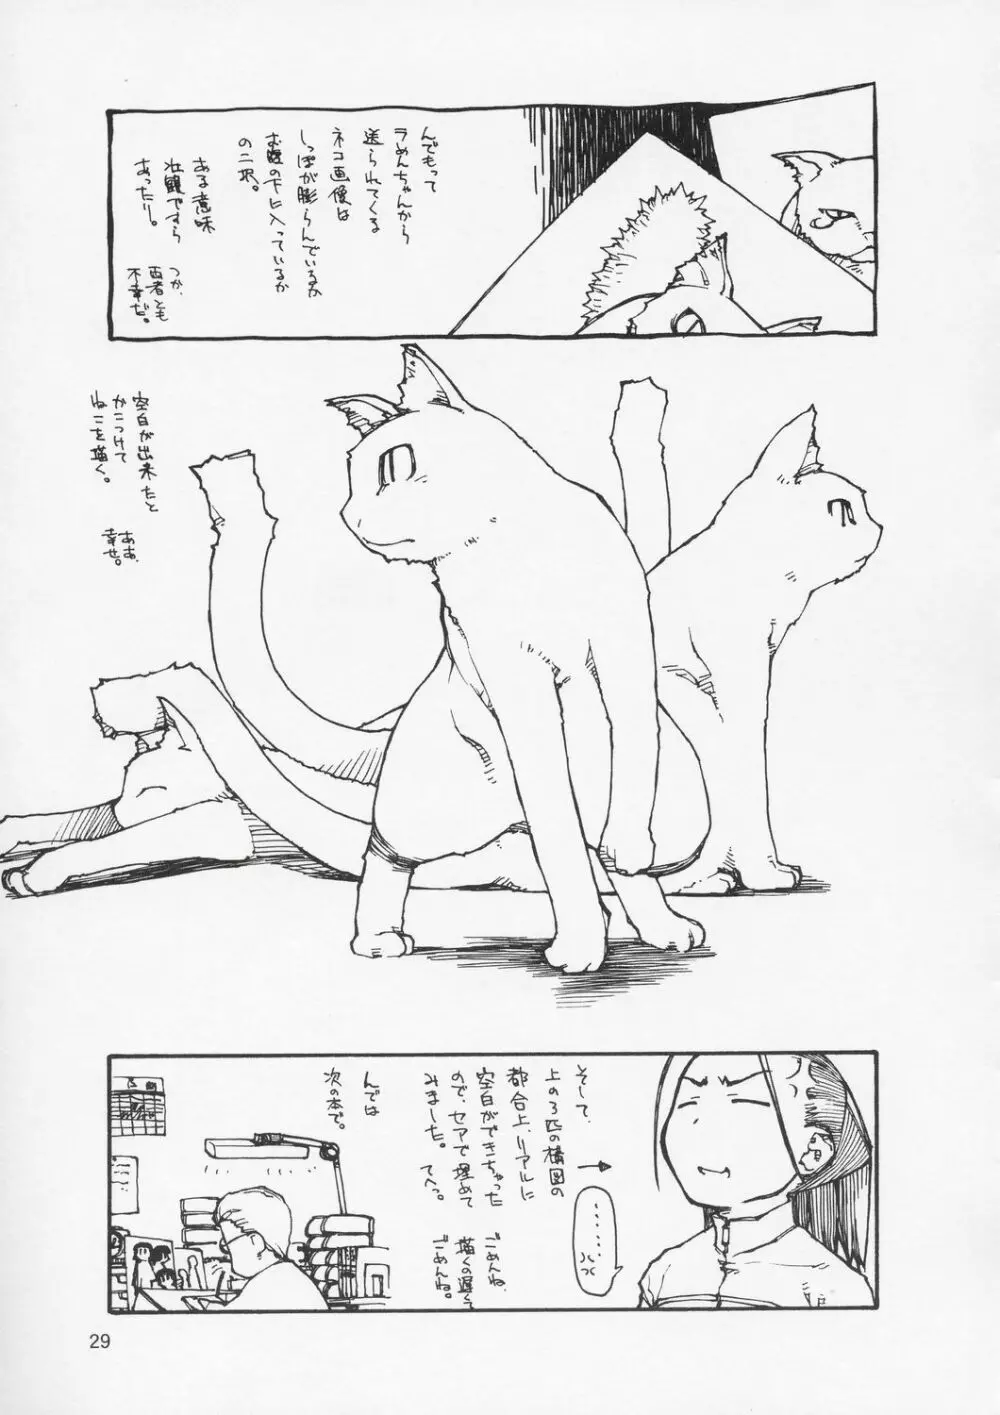 んでもって
ラめんちゃんから
送られてくる
ネコ画像は
しっぽが膨らんでいるか
お腹の下に入っているか
の二択。
ある意味
壮観ですら
あったり。
つか、
両者とも
不幸だ。
空白が出来たと
かこつけて
ねこを描く。
ああ、
幸せ。
そして、
上の3匹の構図の
都合上、リアルに
空白ができちゃった
ので、セアで埋めて
みました。てへっ。
ごめんね、
描くの遅くて
ごめんね。
んでは
次の本で。
29